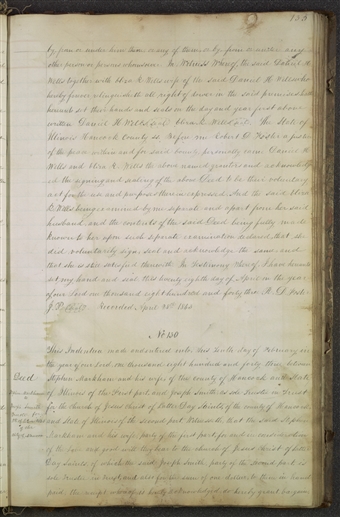 by, from or under him them or any of them, or by, from or under any
other person or persons whomsoever. In Witness Whereof, the said Daniel H.
Wells together with Eliza R. Wells wife of the said Daniel H. Wells who
hereby forever relinquisheth all right of dower in the said premises hath
hereunto set their hands and seals on the day and year first above
written Daniel H. Wells Eliza R. Wells The State of
Illinois Hancock County ss. Before me Robert D. Foster a Justice
of the peace within and for said County personally came Daniel H.
Wells and Eliza R. Wells the above named grantors and acknowledged
the signing and sealing of the above Deed to be their voluntary
act for the use and purposes therein expressed. And the said Eliza
R. Wells being examined by me separate and apart from her said
husband, and the contents of the said Deed being fully made
known to her upon such separate examination declared, that she
did voluntarily sign, seal and acknowledge the same and
that she is still satisfied therewith. In Testimony whereof, I have hereunto
set my hand and seal this twenty eighth day of April in the year
of our Lord one thousand eight hundred and forty three. R. D. Foster
J.P. Recorded, April 28th 1843
No 130
This Indenture made and entered into this tenth day of February in
the year of our Lord, one thousand eight hundred and forty three between
Deed
Stephen Markham and his wife of the county of Hancock and State
of Illinois of the first part, and Joseph Smith as sole Trustee in Trust
for the Church of Jesus Christ of Latter Day Saints, of the county of Hancock
and State of Illinois of the second part Witnesseth, that the said Stephen
Markham and his wife, party of the first part, for and in consideration
of the love and good will they bear to the Church of Jesus Christ of Latter
Day Saints, of which the said Joseph Smith, party of the second part is
sole Trustee in Trust, and also for the sum of one dollar to them in hand
paid, the receipt whereof is hereby acknowledged, do hereby grant bargain